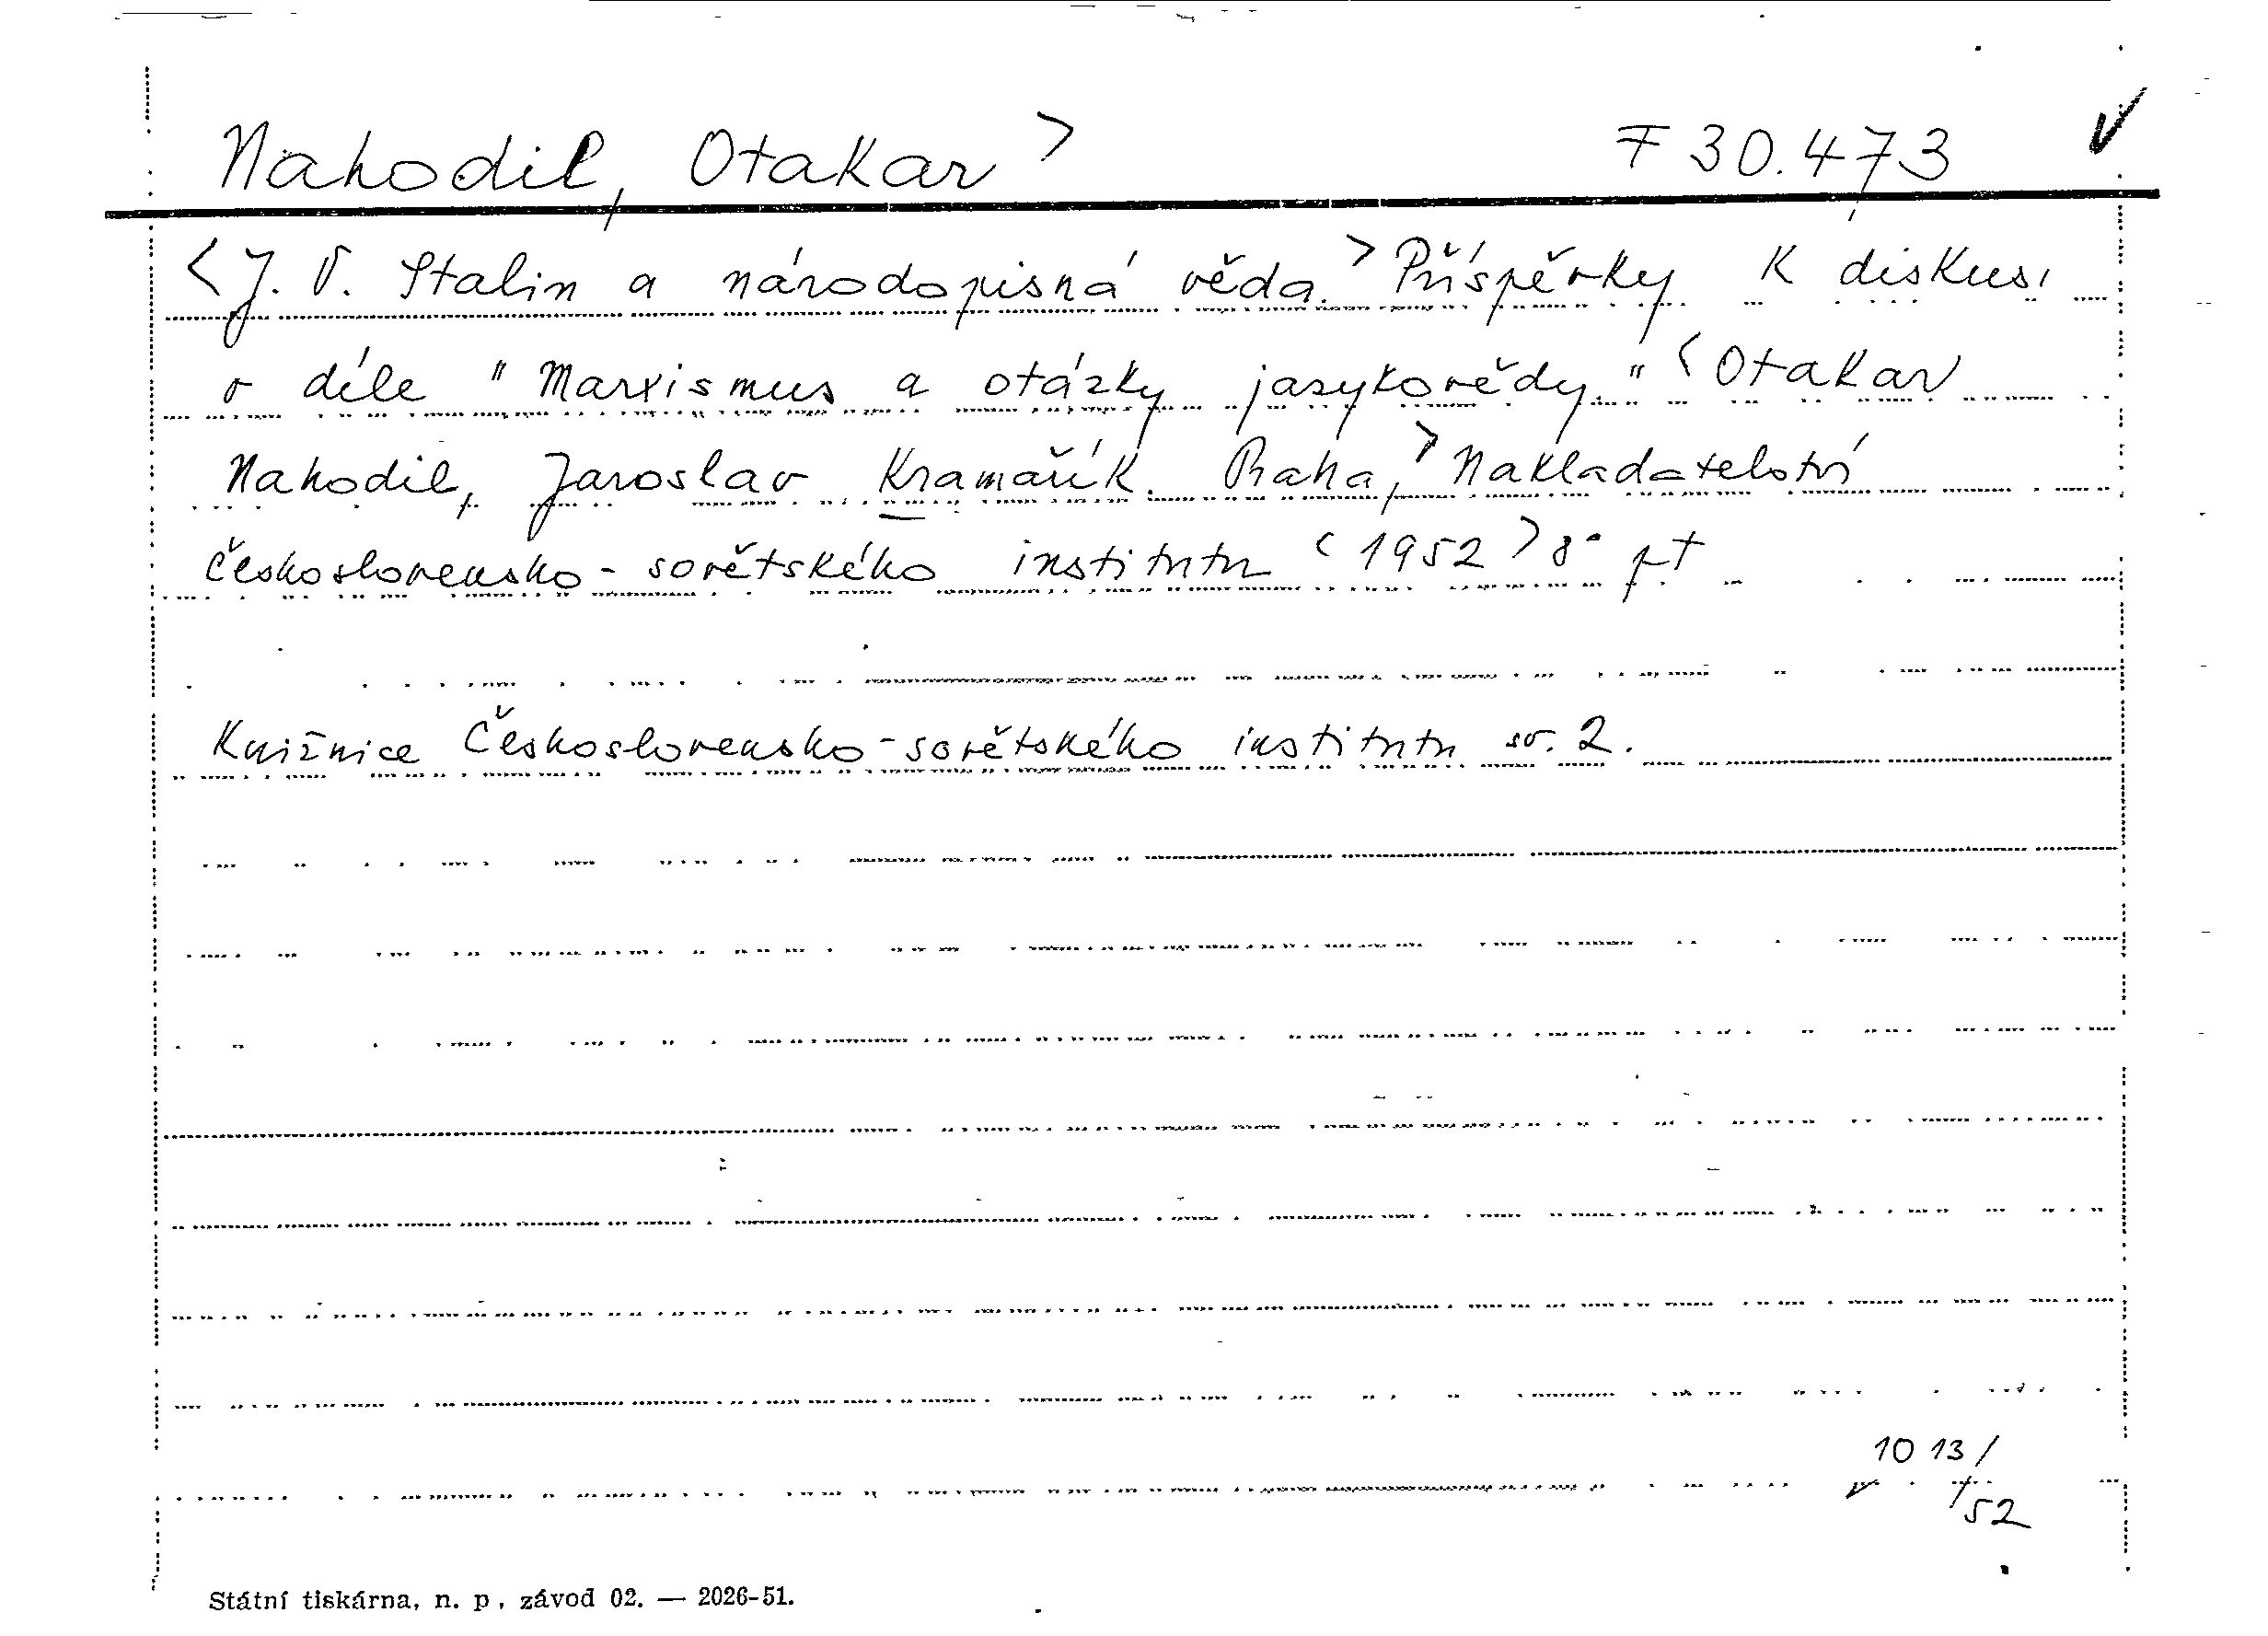 Nahodil, Otakar > F 30.473
<J. V. Stalin a národopisná věda.> Příspěvky k diskusi
o díle "Marxismus a otázky jazykovědy." <Otakar
Nahodil, Jaroslav Kramařík. Praha,> Nakladatelství
Československo-sovětského institutu <1952> 8°
Knižnice Československo-sovětského institutu sv. 2.
1013/
52
Státní tiskárna, n. p., závod 02. — 2026-51.